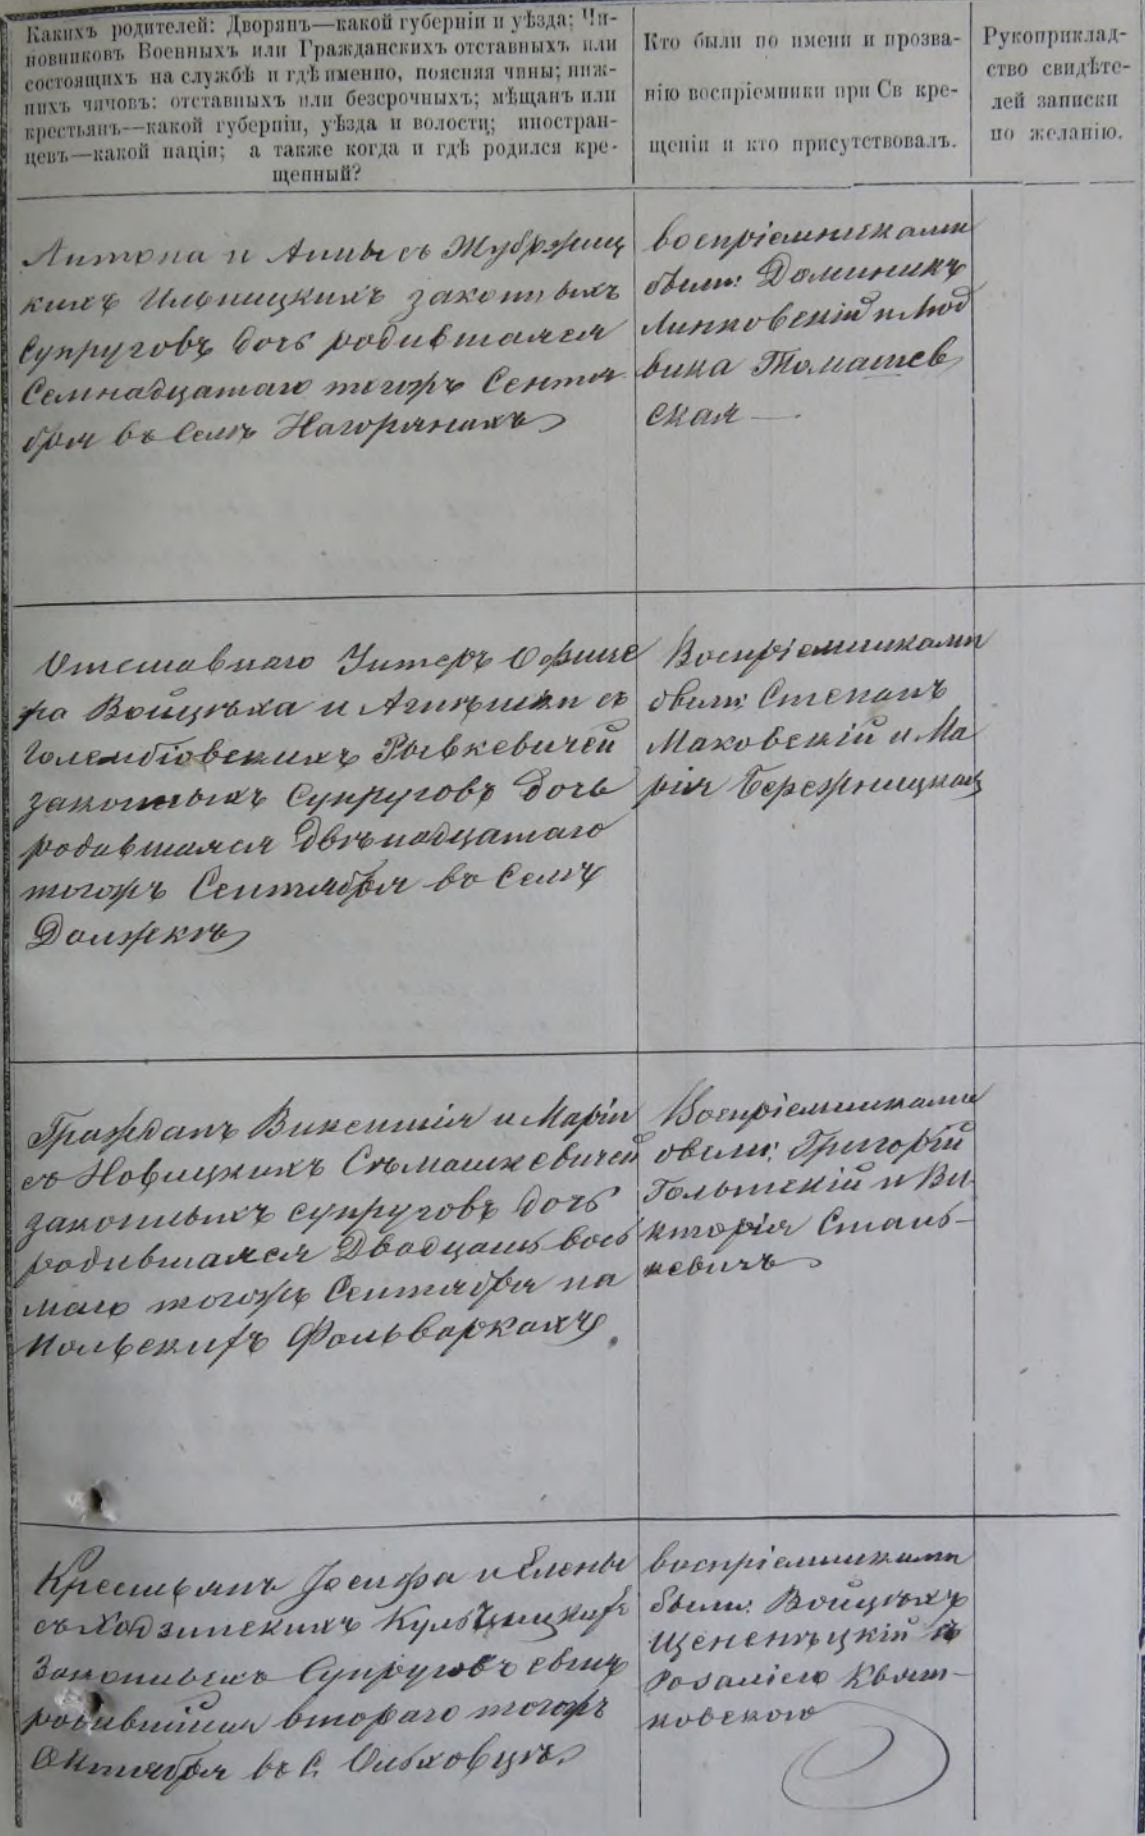 Какихъ родителей: Дворянъ—какой губерніи и уѣзда; Чи-
новниковъ Военныхъ или Гражданскихъ отставныхъ или
состоящихъ на службѣ и гдѣ именно, поясняя чины; ниж-
нихъ чиновъ: отставныхъ или безсрочныхъ; мѣщанъ или
крестьянъ—какой губерніи, уѣзда и волости; иностран-
цевъ—какой націи; а также когда и гдѣ родился кре-
щенный?
Кто были по имени и прозва-
нію воспріемники при Св кре-
щеніи и кто присутствовалъ.
Рукоприклад-
ство свидѣте-
лей записки
по желанію.
Антона и Анны съ Жубржиц
кихъ Ильницкихъ законныхъ
Супруговъ дочь родившаяся
Семнадцатаго тогожъ Сентя
бря въ Селѣ Нагорянахъ
воспріемниками
были: Доминикъ
Линковскій и Люд
вика Томашев
ская
Отставнаго Унтеръ Офице
ра Войцѣха и Агнѣшки съ
Голембіовскихъ Рывкевичей
законныхъ Супруговъ дочь
родившаяся двѣнадцатаго
тогожъ Сентября въ Селѣ
Должкѣ
Воспріемниками
были: Степанъ
Маковскій и Ма
рія Бережницкая
Гражданъ Викентія и Маріи
съ Новицкихъ Сѣмашкевичей
законныхъ супруговъ дочь
родившаяся Двадцать вось
маго тогожъ Сентября на
Польскихъ Фольваркахъ.
Воспріемниками
были: Григорій
Гольтскій и Ви
кторія Стань-
кевичъ
Крестьянъ Іосифа и Елены
съ Ходзинскихъ Кульчицкихъ
Законныхъ Супруговъ сынъ
родившійся втораго тогожъ
Октября въ С. Ольховцѣ.
воспріемниками
были: Войцѣхъ
Щененѣцкій съ
Розаліею Квят-
ковскою